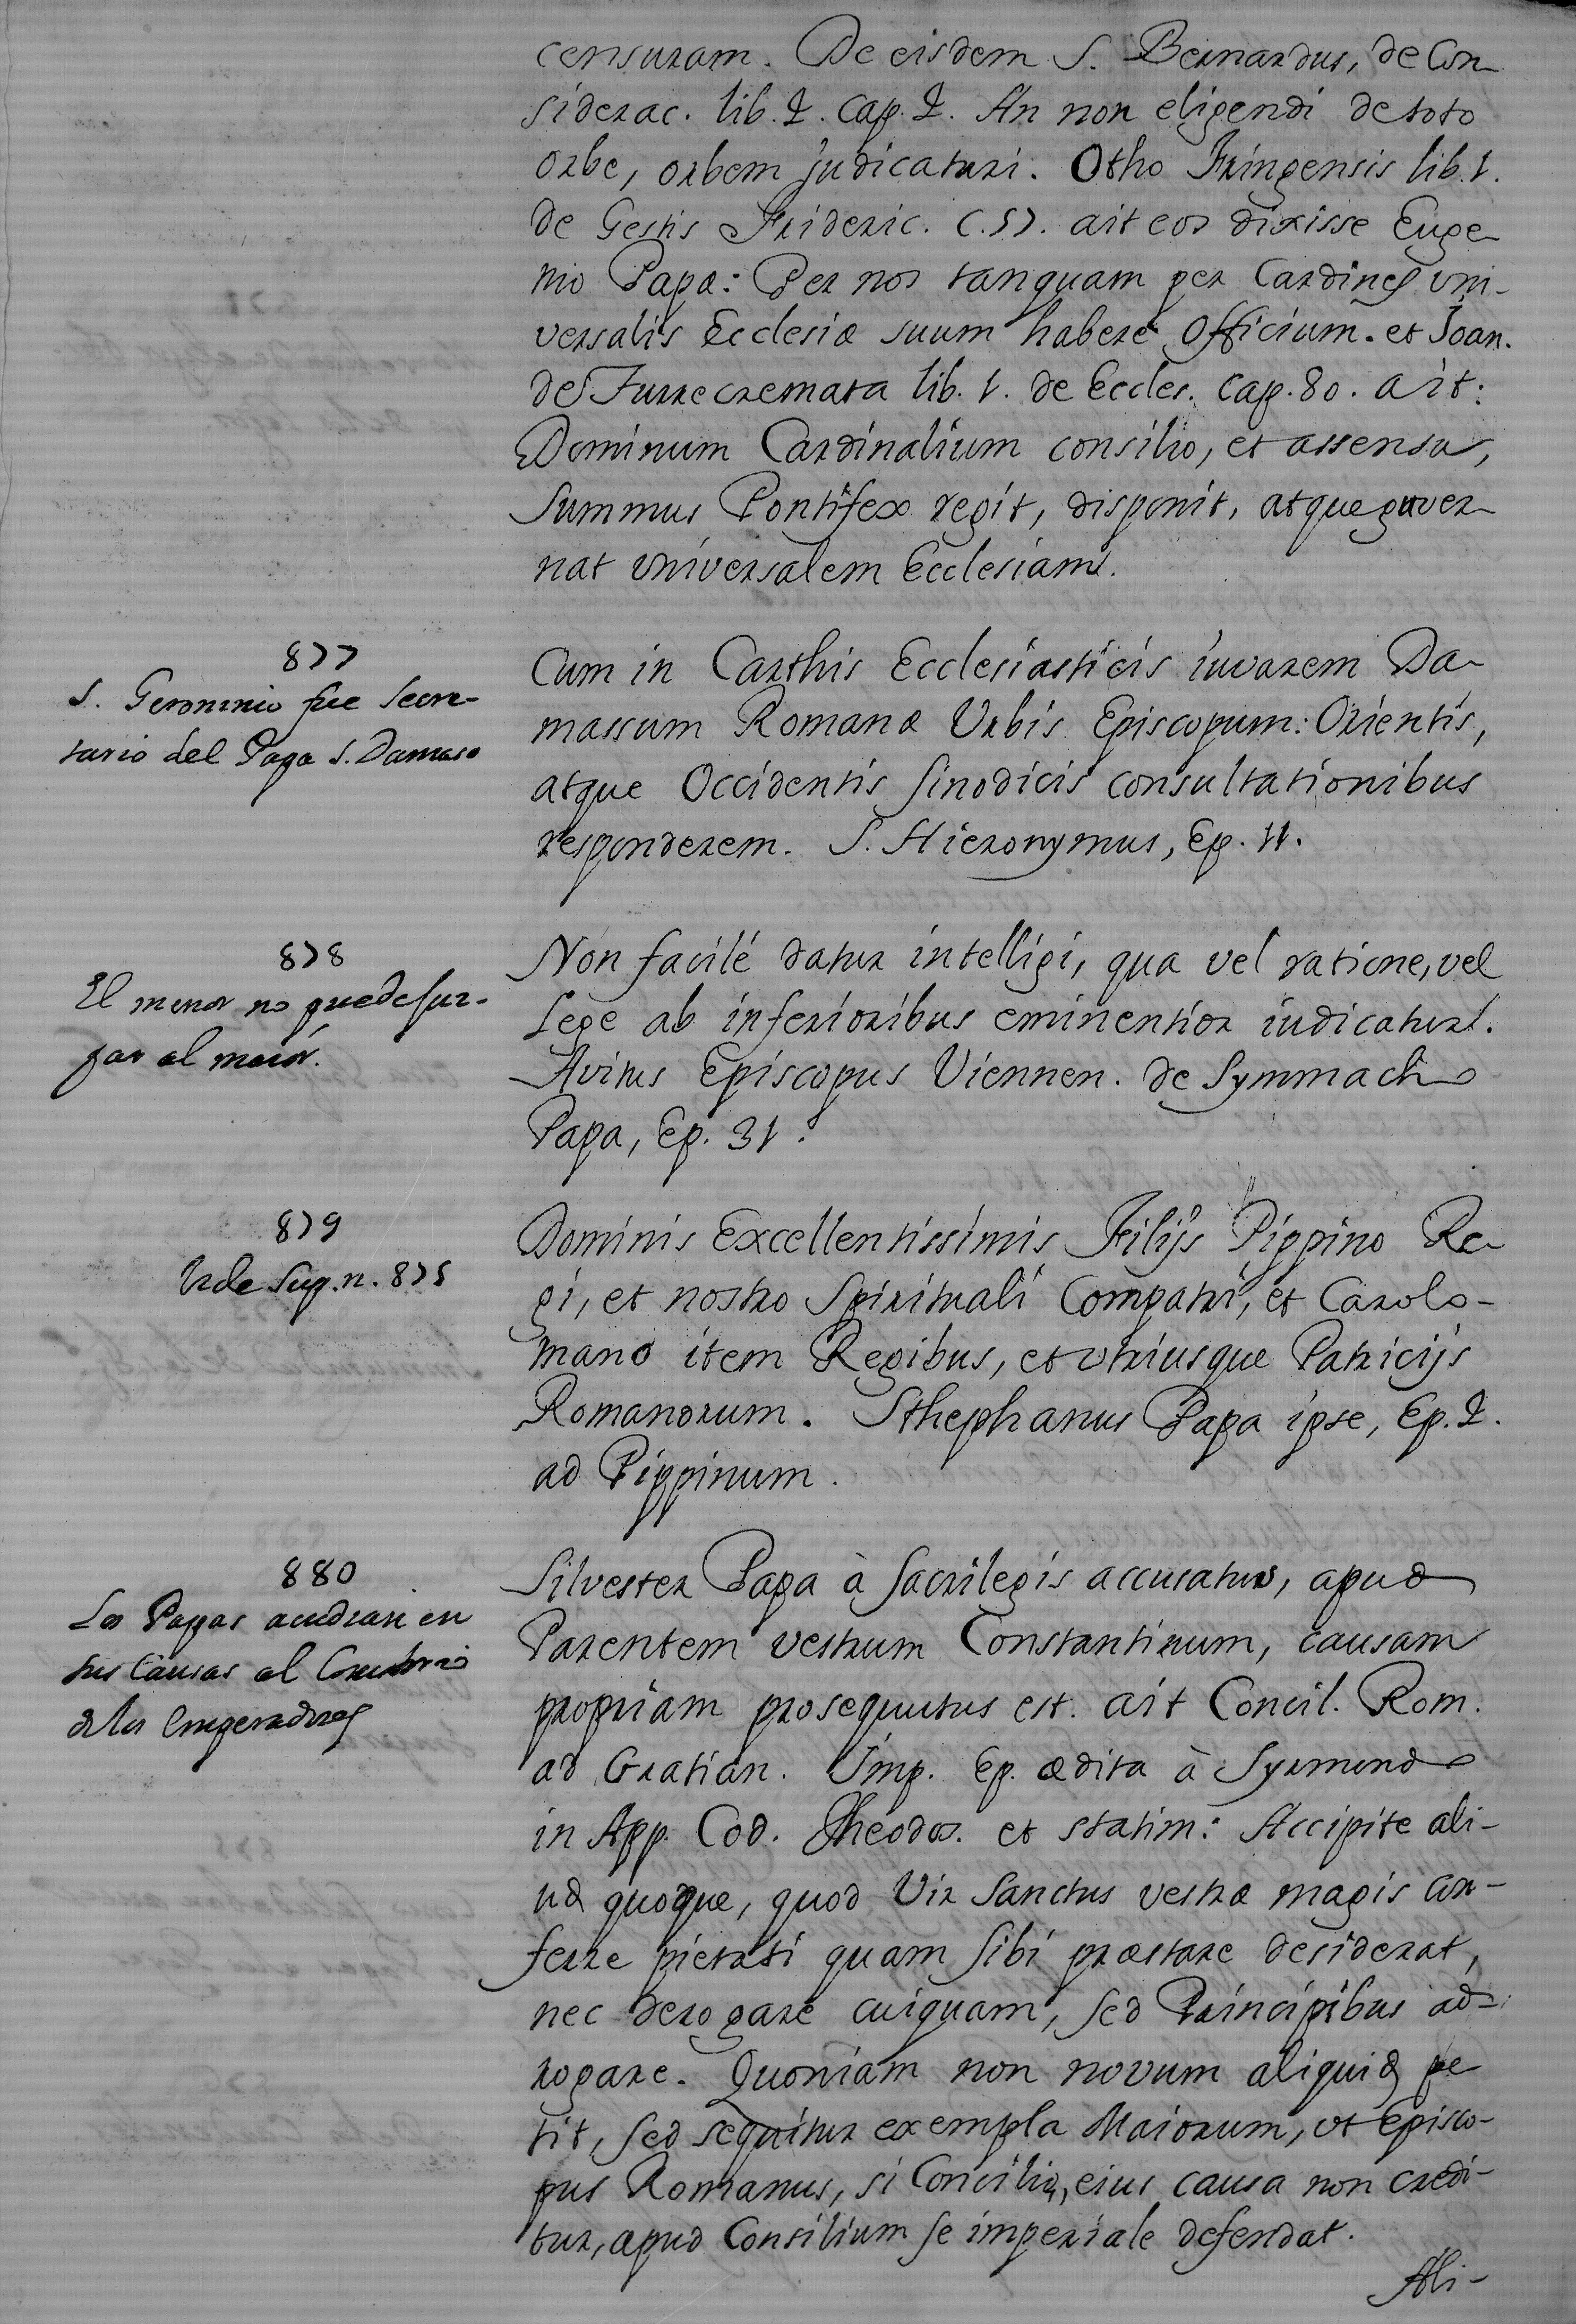 censuram. De eisdem S. Bernardus, de Con-
siderac. lib. 2. cap. 2. An non eligendi de toto
orbe, orbem judicaturi. Otho Fringensis lib. 1.
de Gestis Frideric. c. 57. ait eos dixisse Euge-
nio Papæ: Per nos tanquam per Cardines vni-
versalis Ecclesiæ suum habere officium. et Joan.
de Turrecremata lib. 1. de Eccles. cap. 80. ait:
Dominum Cardinalium consilio, et assensu,
Summus Pontifex regit, disponit, atque guver-
nat vniversalem Ecclesiam.
877
S. Geronimo fue Secre-
tario del Papa S. Damaso
Cum in Carthis Ecclesiasticis iuvarem Da-
massum Romanæ Urbis Episcopum: Orientis,
atque Occidentis Sinodicis consultationibus
responderem. S. Hieronymus, Ep. 11.
878
El menor no puede Juz-
gar al maior.
Non facilé datur intelligi, qua vel ratione, vel
Lege ab inferioribus eminentior iudicatur.
Avitus Episcopus Viennen. de Symmacho
Papa, Ep. 31.
879
Vide Sup. n. 875
Dominis Excellentissimis Filijs Pippino Re-
gi, et nostro Spirituali Compatri, et Carolo-
mano item Regibus, et vtriusque Patricijs
Romanorum. Sthephanus Papa ipse, Ep. 2.
ad Pippinum.
880
Los Papas acudian en
sus Causas al Consistorio
de los Emperadores
Silvester Papa à Sacrilegis accusatus, apud
Parentem vestrum Constantinum, causam
propriam prosequutus est. ait Concil. Rom.
ad Gratian. Imp. Ep. ædita à Syrmondo
in App. Cod. Theodos. et statim: Accipite ali-
ud quoque, quod Vir Sanctus vestræ magis con-
ferre pietati quam Sibi præstare desiderat,
nec derogare cuiquam, Sed Principibus ad-
rogare. Quoniam non novum aliquid pe-
tit, Sed sequitur exempla Maiorum, vt Episco-
pus Romanus, si Concilio, eius causa non credi-
tur, apud Consilium Se imperiale defendat.
Ali-